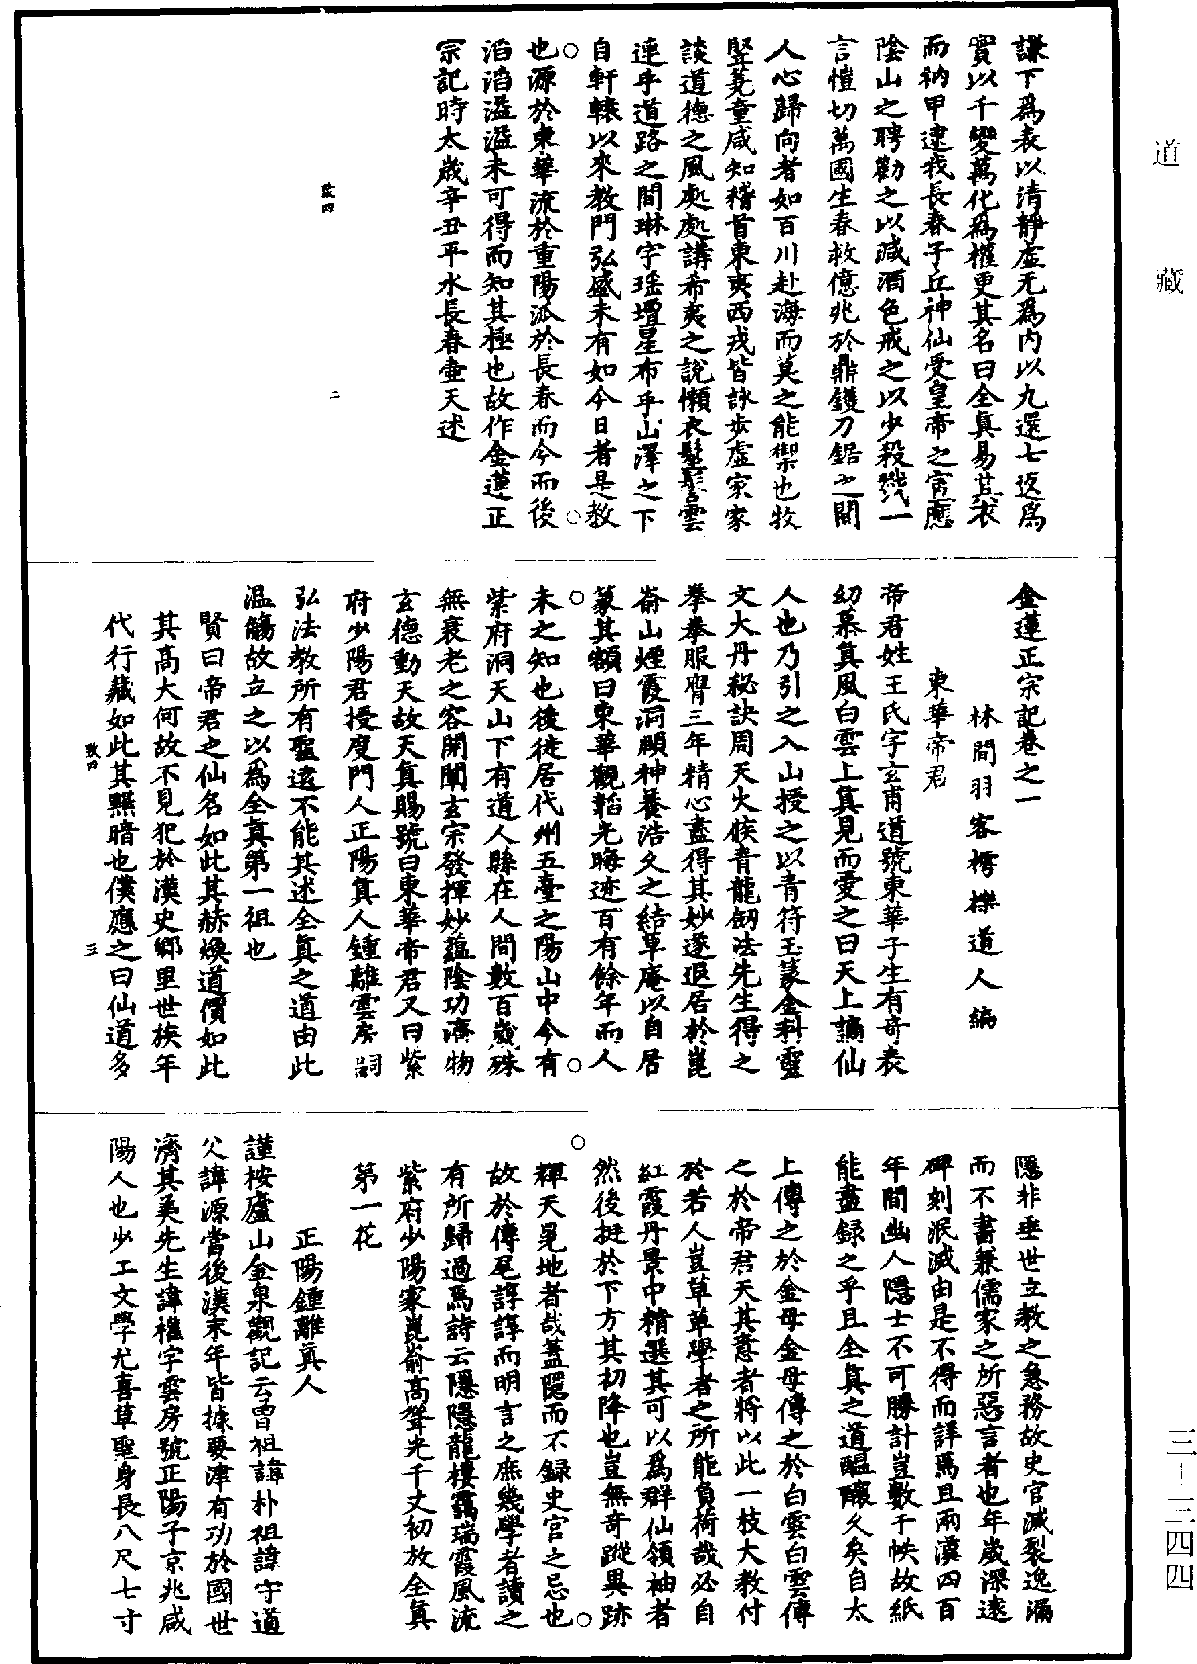 謙下爲表以清靜虛无爲內以九還七返爲
實以千變萬化爲權更其名曰全眞易其衣
而衲甲逮我長春子丘神仙受皇帝之宣應
陰山之聘勸之以減酒色戒之以少殺戮一
言愷切萬國生春救億兆於鼎鑊刀鋸之間
人心歸向者如百川赴海而莫之能禦也牧
豎蕘童咸知稽首東夷西戎皆詠步虛家家
談道德之風處處講希夷之說懶衣髽髻雲
連乎道路之間琳宇瑤壇星布乎山澤之下
自軒轅以來教門弘盛未有如今日者是教
也源於東華流於重陽派於長春而今而後
滔滔溢溢未可得而知其極也故作金蓮正
宗記時太歲辛丑平水長春壺天述
致四
二
金蓮正宗記卷之一
林間羽客樗櫟道人編
東華帝君
帝君姓王氏字玄甫道號東華子生有奇表
幼慕眞風白雲上眞見而愛之曰天上謫仙
人也乃引之入山授之以青符玉篆金科靈
文大丹秘訣周天火候青龍劒法先生得之
拳拳服膺三年精心盡得其妙遂退居於崑
崙山煙霞洞頤神養浩久之結草庵以自居
篆其額曰東華觀韜光晦迹百有餘年而人
未之知也後徙居代州五臺之陽山中今有
紫府洞天山下有道人縣在人間數百歲殊
無衰老之容開闡玄宗發揮妙蘊陰功濟物
玄德動天故天眞賜號曰東華帝君又曰紫
府少陽君授度門人正陽眞人鍾離雲房嗣
弘法教所有聖迹不能具述全眞之道由此
濫觴故立之以爲全眞第一祖也
賢曰帝君之仙名如此其赫煥道價如此
其高大何故不見犯於漢史鄉里世族年
代行藏如此其黯暗也僕應之曰仙道多
致四
三
隱非垂世立教之急務故史官滅裂逸漏
而不書兼儒家之所惡言者也年歲深遠
碑刻泯滅由是不得而詳焉且兩漢四百
年間幽人隱士不可勝計豈數千帙故紙
能盡錄之乎且全眞之道醞釀久矣自太
上傳之於金母金母傳之於白雲白雲傳
之於帝君天其意者將以此一枝大教付
於若人豈草草學者之所能負荷哉必自
紅霞丹景中精選其可以爲群仙領袖者
然後挺於下方其初降也豈無奇蹤異跡
輝天晃地者哉蓋隱而不錄史官之忌也
故於傳尾諄諄而明言之庶幾學者讀之
有所歸過焉詩云隱隱龍樓靄瑞霞風流
紫府少陽家崑崙高聳光千丈初放全眞
第一花
正陽鍾離眞人
謹按廬山金泉觀記云曾祖諱朴祖諱守道
父諱源當後漢末年皆據要津有功於國世
濟其美先生諱權字雲房號正陽子京兆咸
陽人也少工文學尤喜草聖身長八尺七寸
道藏
三—三四四